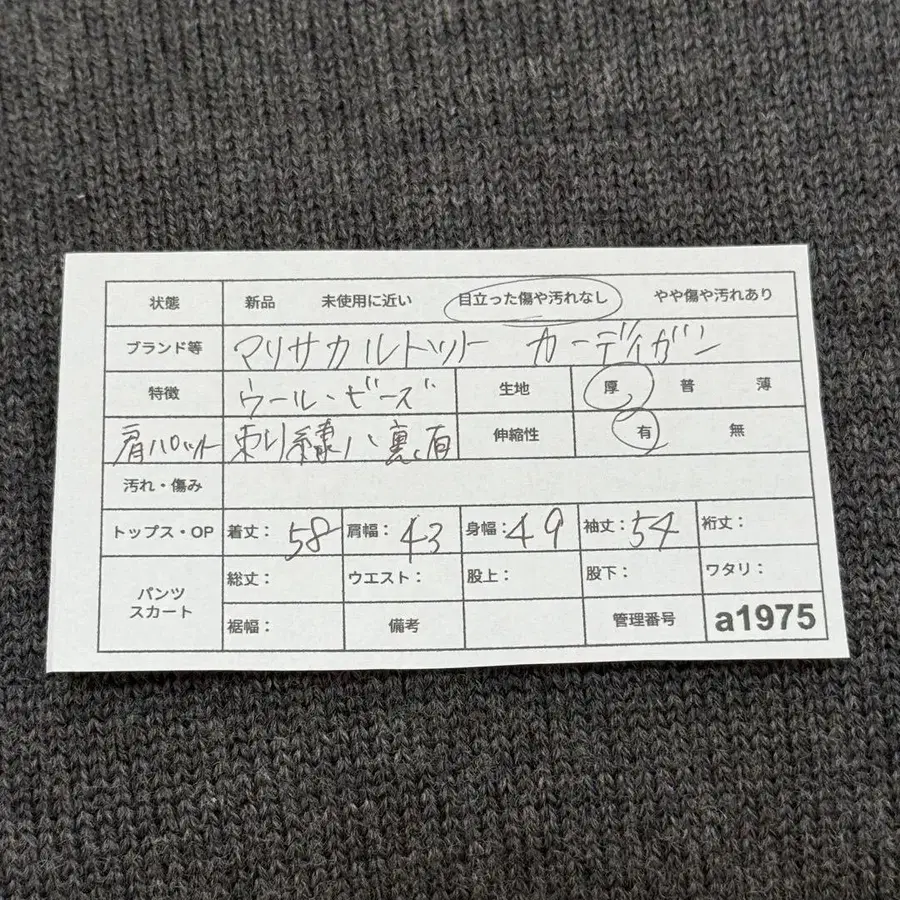 状態 新品 未使用に近い 目立った傷や汚れなし やや傷や汚れあり
ブランド等 マリサカルトット カーディガン
特徴 ウール・ビーズ 生地 厚 普 薄
肩パット 刺繍 裏有 伸縮性 有 無
汚れ・傷み
トップス・OP 着丈: 58 肩幅: 43 身幅: 49 袖丈: 54 裄丈:
パンツ スカート 総丈: ウエスト: 股上: 股下: ワタリ:
裾幅: 備考 管理番号 a1975